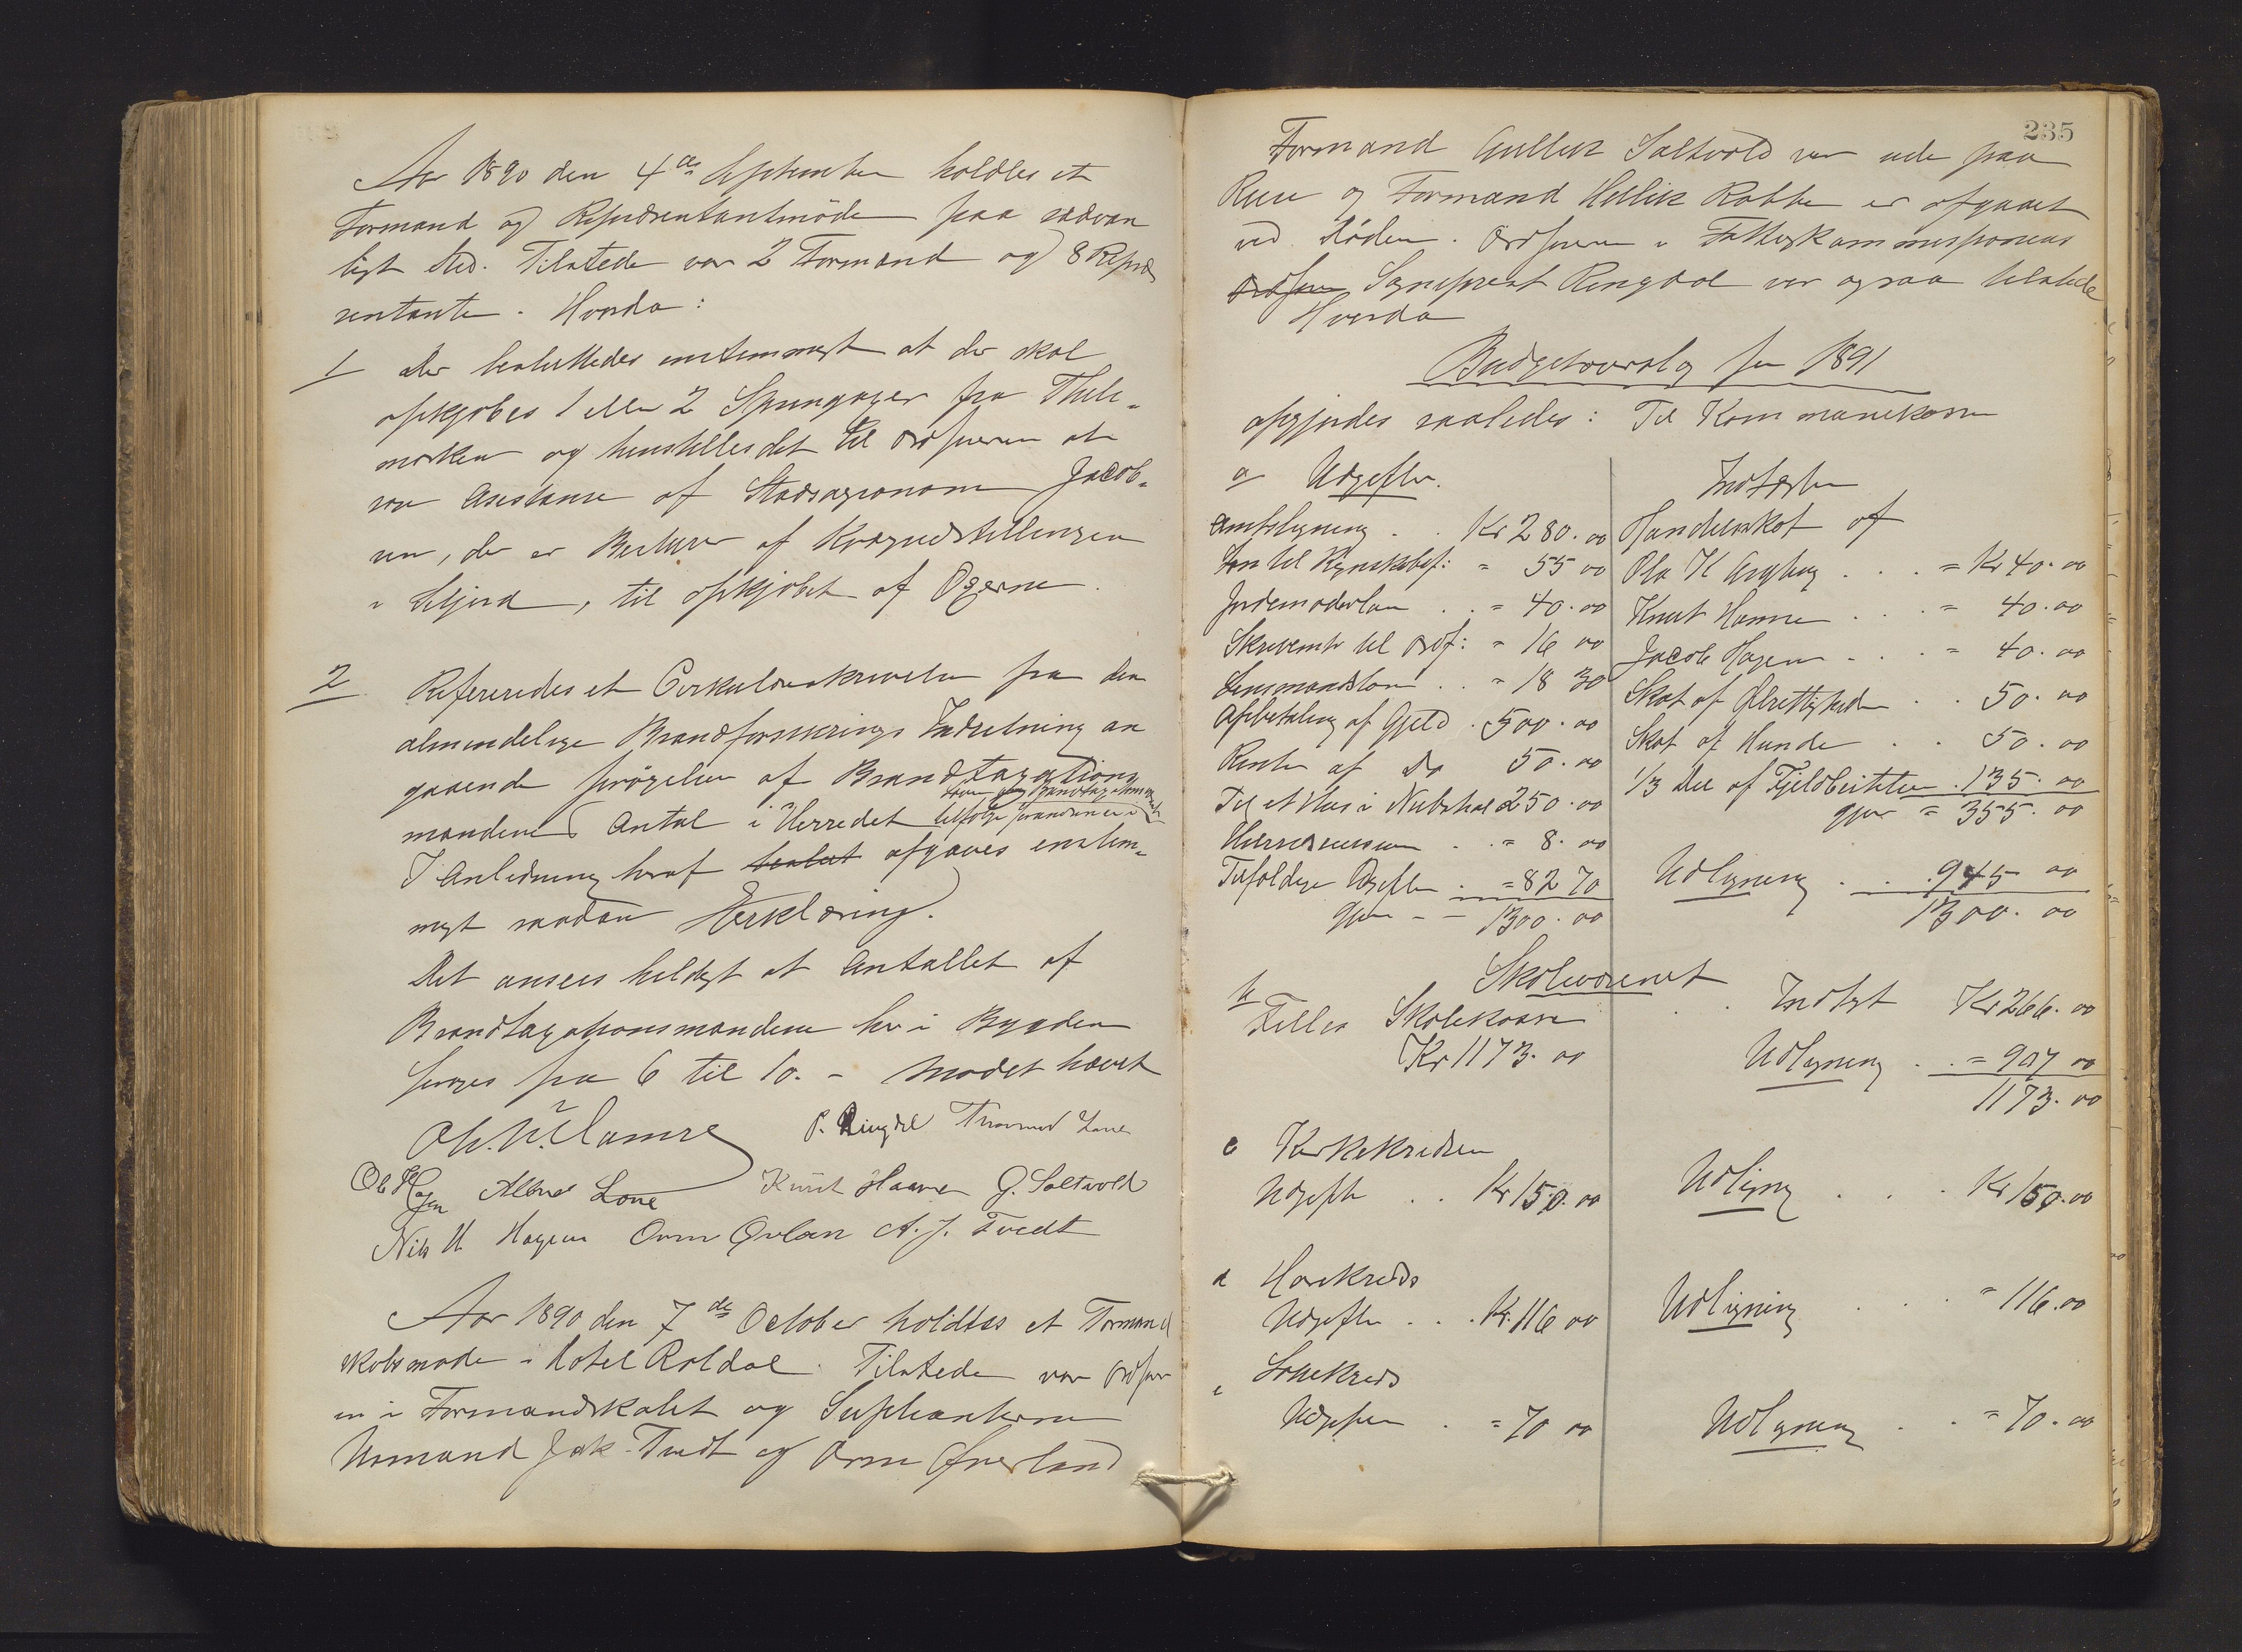 Aar 1890 den 4de September holdtes et
Formand og Repræsentantmöde paa sædvan
ligt Sted. Tilstede var 2 Formænd og 8 Repræ
sentanter. Hvorda:
1 Der besluttedes enstemmigt at der skal
opkjöbes 1 eller 2 Springoxer fra Thele-
marken og henstilles det til Ordføreren at
søge Assistanse af Stadsagronom Jacob-
sen, der er Bestyrer af Kvægudstillingen
i Seljord, til opkjöbet af Oxerne.
2 Refereredes et Cirkulæreskrivelse fra den
almindelige Brandforsikrings Indretning an
gaaende forøgelse af Brandtaxations
mændenes Antal i Herredet tilfølge forandring i
Lov om Brandtaxationsmænd
I Anledning heraf beslut afgaves enstem-
migt saadan Erklæring.
Det ansees heldigt at Antallet af
Brandtaxationsmændene her i Bygden
forøges fra 6 til 10. - Mødet hævet
Ole K. Hamre P. Ringdal Tormod Lone
Ole Hagen Albret Lone Knut Haavre G. Saltvold
Nils H Hagen Orm Øvlan A. J. Tvedt
Aar 1890 den 7de October holdtes et Formand
skabsmøde i Hotel Røldal. Tilstede var Ordfør
en i Formandskabet og Supleanterne
Asmund Jak. Tvedt og Orm Øverland
235
Formand Gullik Saltvold var ude paa
Reise og Formand Hellik Rabbe er afgaaet
ved Döden. Ordføreren i Fattigkommissionens
Ordfører Sogneprest Ringdal var ogsaa tilstede
Hvorda
Budgetoverslag for 1891
opgjordes saaledes: Til Kommunekassen
a Udgifter.
Amtsligning . . Kr 280.00
Løn til Regnskabsf: = 55 00
Jordemoderløn . . = 40.00
Skrivemtr til Ordf: = 16 00
Lensmandsløn . . = 18 30
Afbetaling af Gjeld . 500.00
Renter af Do 50.00
Til et Hus i Nubskar 250.00
Herredscassen . . = 8.00
Tilfældige Udgifter . = 82 70
Gjør - - 1300.00
Indtægter
Handelsskat af
Ola K Argbog . . . = Kr 40.00
Knut Hamre . . . = 40.00
Jacob Hagen . . . = 40.00
Skat af Ølrettigheder . . 50.00
Skat af Hunde . . 50.00
1/3 Del af Fjeldbeiteleie . 135.00
gjør = 355.00
Udligning . . . 945 00
1300.00
Skolevæsenet
b Felles Skolekasse
Kr 1173.00
Indtgt Kr 266.00
Udligning . . = 907 00
1173.00
c Kirkekredsen
Udgifter . . Kr 150.00
Udligng . . . Kr 150.00
d Harekreds
Udgifter . . . Kr. 116 00
Udligning . . . = 116.00
e Lonekreds
Udgifter . = 70 00
Udligning . . = 70.00